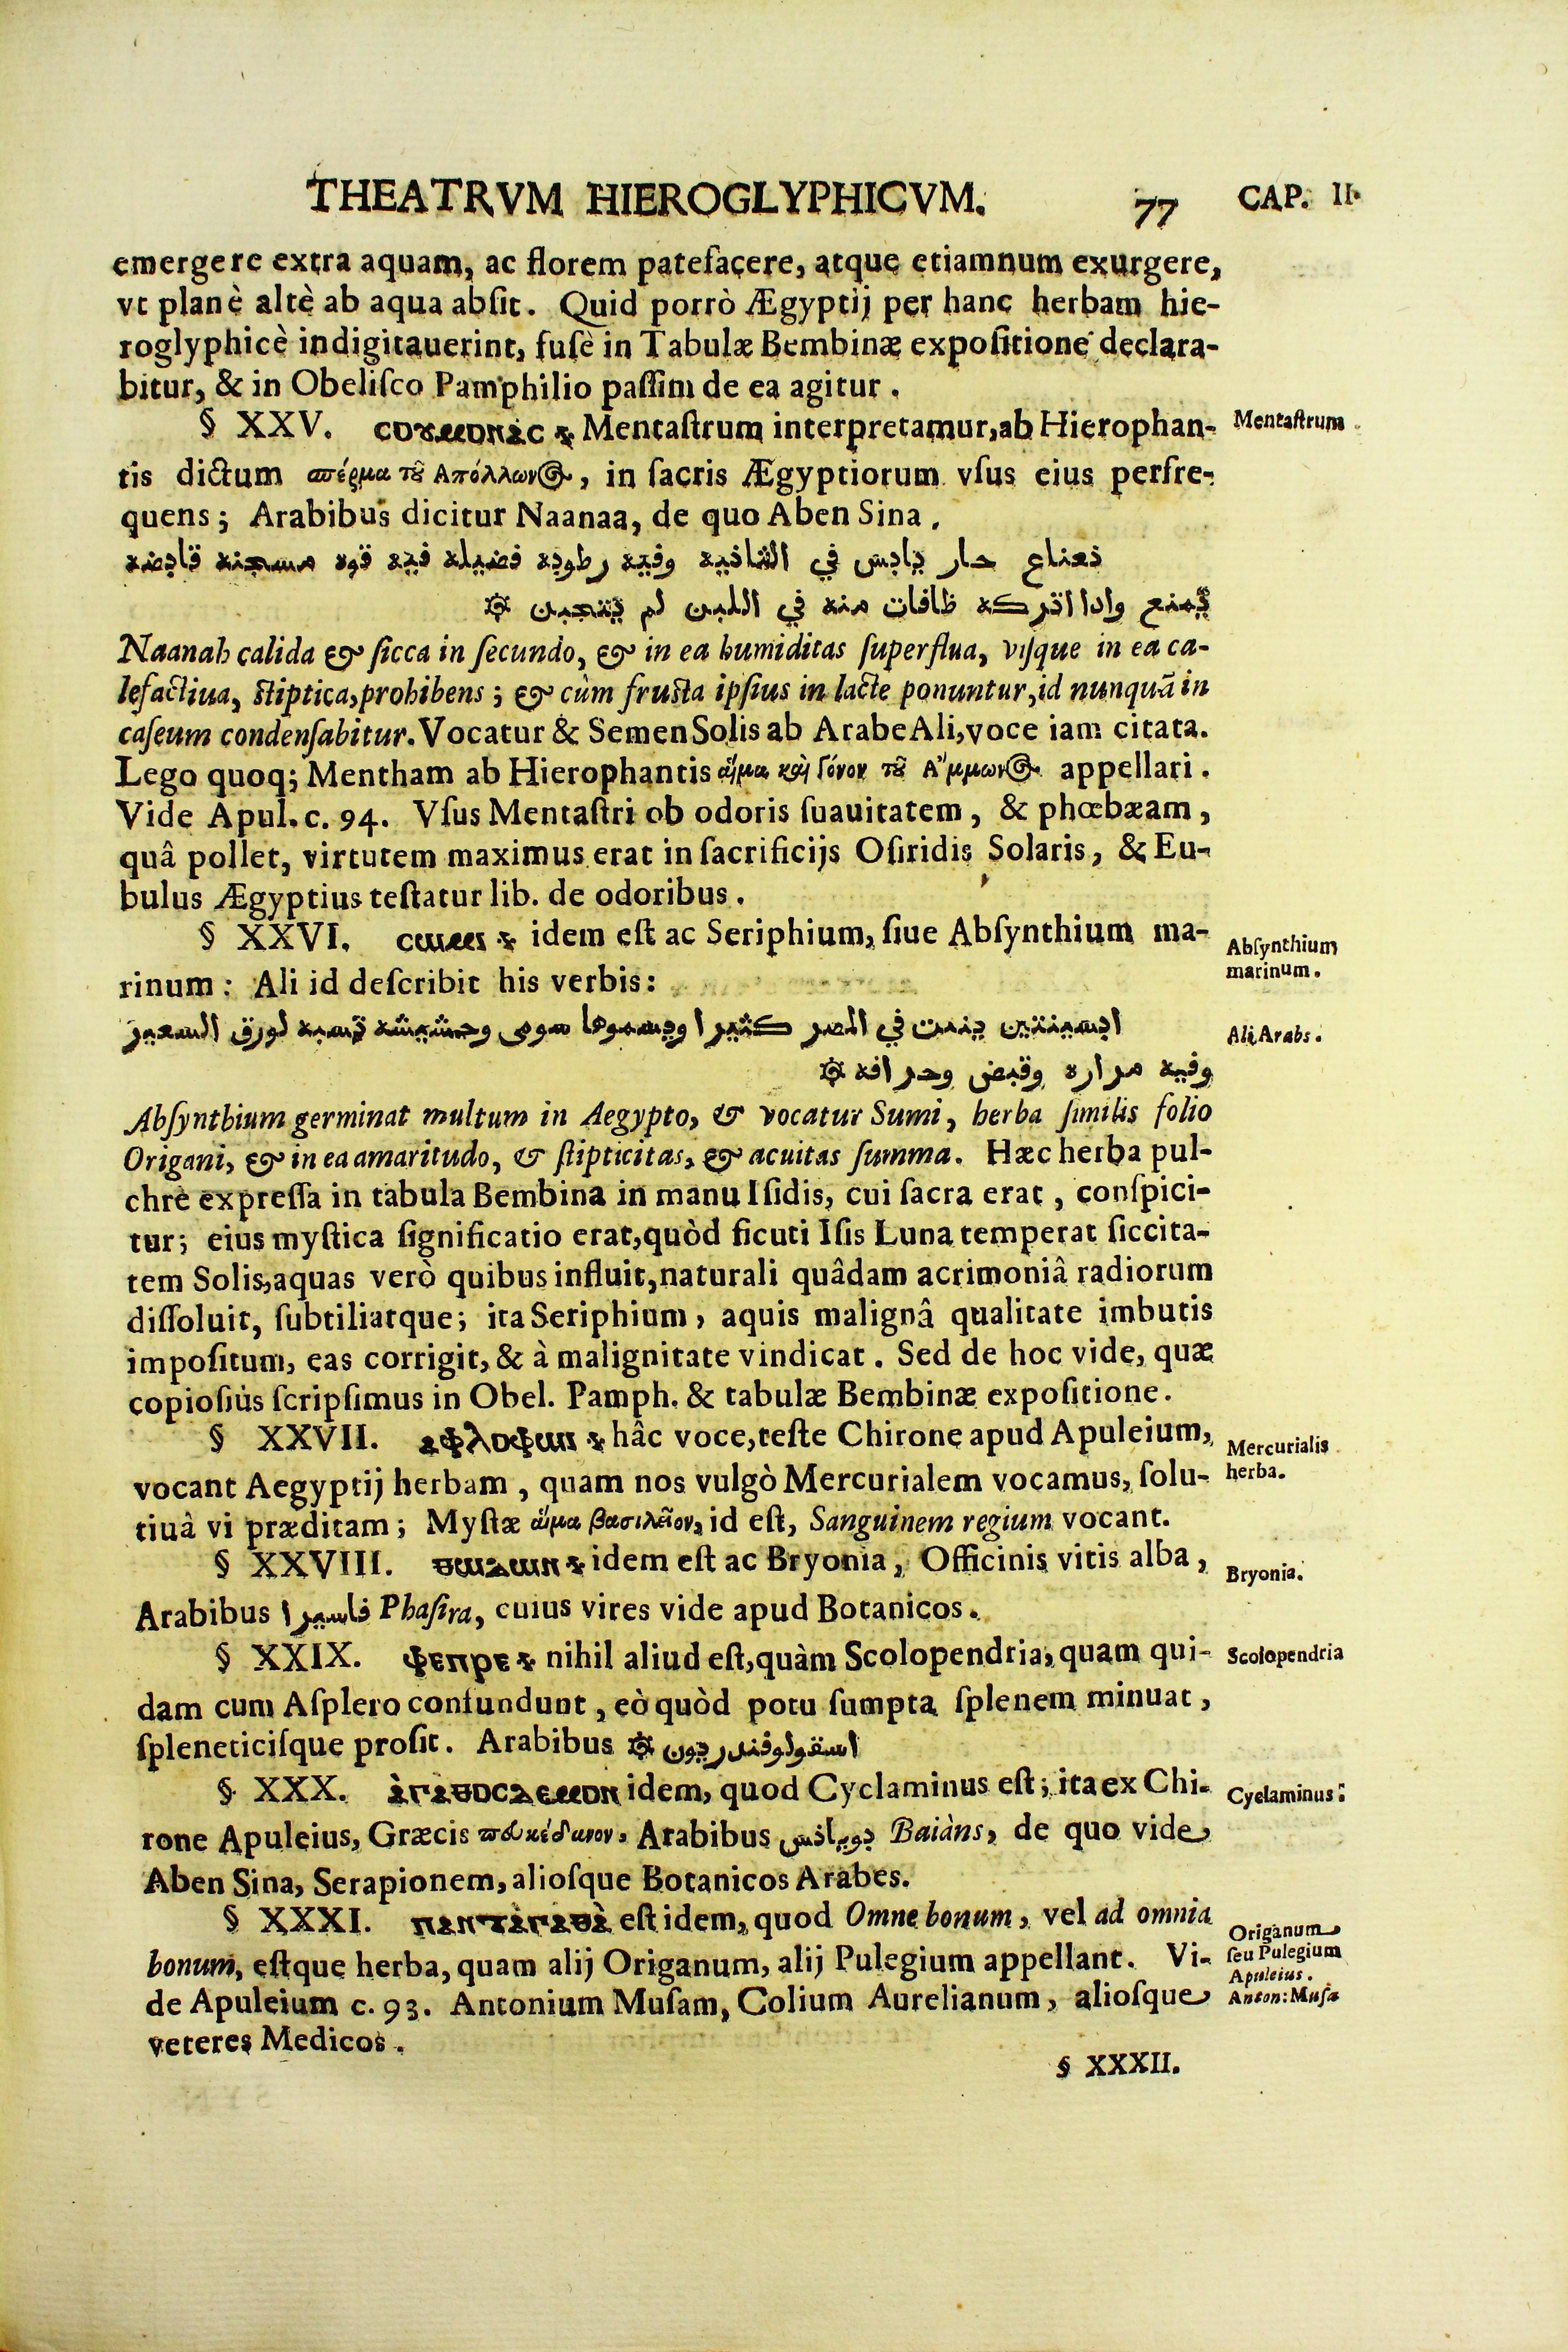 THEATRVM HIEROGLYPHICVM. 77 CAP. II.
emergere extra aquam, ac florem patefacere, atque etiamnum exurgere,
vt planè altè ab aqua absit. Quid porrò Ægyptij per hanc herbam hie-
roglyphicè indigitauerint, fusè in Tabulæ Bembinæ expositione declara-
bitur, & in Obelisco Pamphilio passim de ea agitur.
§ XXV. ⲥⲟⲩⲙⲟⲛⲓⲁⲥ Mentastrum interpretamur, ab Hierophan-
Mentastrum
tis dictum σπέρμα τȣ͂ Απόλλωνος, in sacris Ægyptiorum vsus eius perfre-
quens; Arabibus dicitur Naanaa, de quo Aben Sina.
نعناع حار يابس في الثانيه وفيه رطوبه فضيله فيه قوه مسخنه قابضه
يمنع وادا اتركه طافات منه في اللبن لم يتجبن ۞
Naanah calida & sicca in secundo, & in ea humiditas superflua, visque in ea ca-
lefactiua, stiptica, prohibens; & cùm frusta ipsius in lacte ponuntur, id nunquã in
caseum condensabitur. Vocatur & Semen Solis ab Arabe Ali, voce iam citata.
Lego quoq; Mentham ab Hierophantis αἷμα καὶ Γόνον τȣ͂ Α῎μμωνος appellari.
Vide Apul. c. 94. Vsus Mentastri ob odoris suauitatem, & phœbæam,
quâ pollet, virtutem maximus erat in sacrificijs Osiridis Solaris, & Eu-
bulus Ægyptius testatur lib. de odoribus.
§ XXVI. ⲥⲱⲙⲓ idem est ac Seriphium, siue Absynthium ma-
Absynthium
marinum.
rinum: Ali id describit his verbis:
ابسينتين ينبت في المصر كثيرا ويسموها سومى وحشيشه تسبه لورق السعير
Ali Arabs.
وفيه مراره وقبض وحرافه ۞
Absynthium germinat multum in Aegypto, & vocatur Sumi, herba similis folio
Origani, & in ea amaritudo, & stipticitas, & acuitas summa. Hæc herba pul-
chrè expressa in tabula Bembina in manu Isidis, cui sacra erat, conspici-
tur; eius mystica significatio erat, quòd sicuti Isis Luna temperat siccita-
tem Solis, aquas verò quibus influit, naturali quâdam acrimoniâ radiorum
dissoluit, subtiliatque; ita Seriphium, aquis malignâ qualitate imbutis
impositum, eas corrigit, & à malignitate vindicat. Sed de hoc vide, quæ
copiosiùs scripsimus in Obel. Pamph. & tabulæ Bembinæ expositione.
§ XXVII. ⲁⲫⲗⲟⲫⲱⲓ hâc voce, teste Chirone apud Apuleium,
Mercurialis
herba.
vocant Aegyptij herbam, quam nos vulgò Mercurialem vocamus, solu-
tiuâ vi præditam; Mystæ αἷμα βασιλεῖον, id est, Sanguinem regium vocant.
§ XXVIII. ⲑⲱⲇⲱⲛ idem est ac Bryonia, Officinis vitis alba,
Bryonia.
Arabibus فاسيرا Phasira, cuius vires vide apud Botanicos.
§ XXIX. ⲫⲉⲡⲣⲉ nihil aliud est, quàm Scolopendria, quam qui-
Scolopendria
dam cum Asplero confundunt, eò quòd potu sumpta splenem minuat,
spleneticisque prosit. Arabibus اسقولوفندريون ۞
§ XXX. ⲁ̀ⲅⲁⲑⲟⲥⲇⲉⲙⲟⲛ idem, quod Cyclaminus est; ita ex Chi-
Cyclaminus:
rone Apuleius, Græcis πευκέδανον, Arabibus Baiàns, de quo vide
Aben Sina, Serapionem, aliosque Botanicos Arabes.
§ XXXI. ⲡⲁⲛⲧⲁ̀ⲅⲁⲑⲁ̀ est idem, quod Omne bonum, vel ad omnia
bonum, estque herba, quam alij Origanum, alij Pulegium appellant. Vi-
Origanum
seu Pulegium
Apuleius.
Anton: Musa
de Apuleium c. 93. Antonium Musam, Colium Aurelianum, aliosque
veteres Medicos.
§ XXXII.